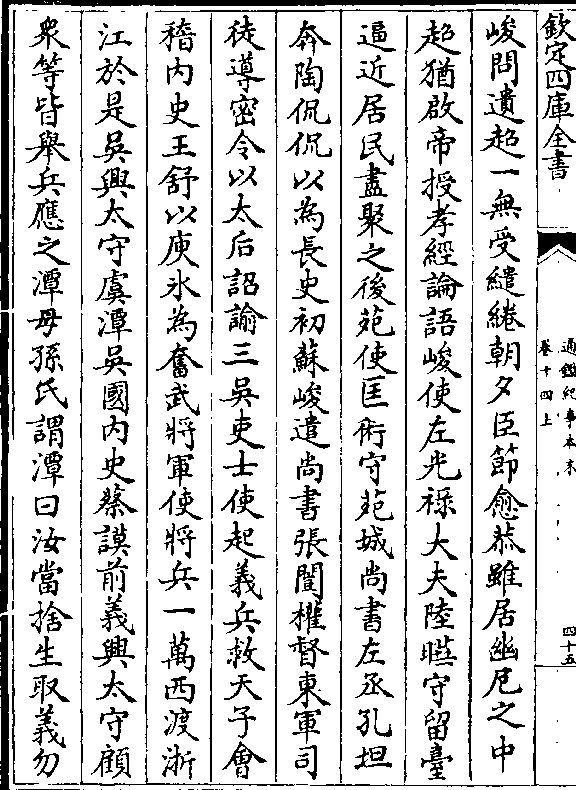 欽定四庫全書
通鑑紀事本末
卷十四上
四十五
峻問遺超一無受繾綣朝夕臣節愈恭雖居幽厄之中
超猶啟帝授孝經論語峻使左光祿大夫陸曄守留臺
逼近居民盡聚之後苑使匡術守苑城尚書左丞孔坦
奔陶侃侃以為長史初蘇峻遣尚書張闓權督東軍司
徒導密令以太后詔諭三吳吏士使起義兵救天子會
稽内史王舒以庾冰為奮武將軍使將兵一萬西渡浙
江於是吳興太守虞潭吳國内史蔡謨前義興太守顧
衆等皆舉兵應之潭母孫氏謂潭曰汝當捨生取義勿